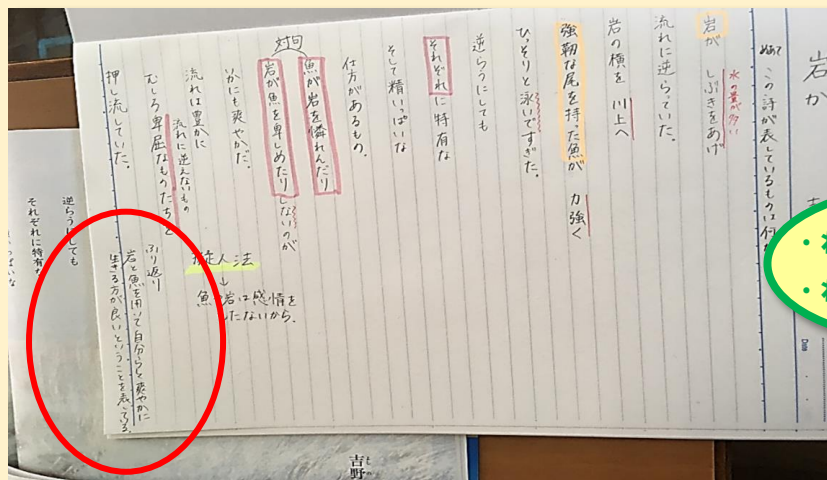 岩が
めあて この詩が表しているものは何か
岩が しぶきをあげ
水の量が多い
流れに逆らっていた。
岩の横を 川上へ
強靭な尾を持った魚が 力強く
ひっそりと泳いですぎた。
逆らうにしても
それぞれに特有な
そして精いっぱいな
仕方があるもの。
対句
魚が岩を憐れんだり
岩が魚を卑しめたりしないのが
いかにも爽やかだ。
流れは豊かに
流れに逆えないもの
むしろ卑屈なものたちを
押し流していた。
擬人法
↓
魚 岩は感情を
たないから。
ふり返り
岩と魚を用いて自分らしく爽やかに
生きる方が良いということを表してる。
逆らうにしても
それぞれに特有な
吉野
Date